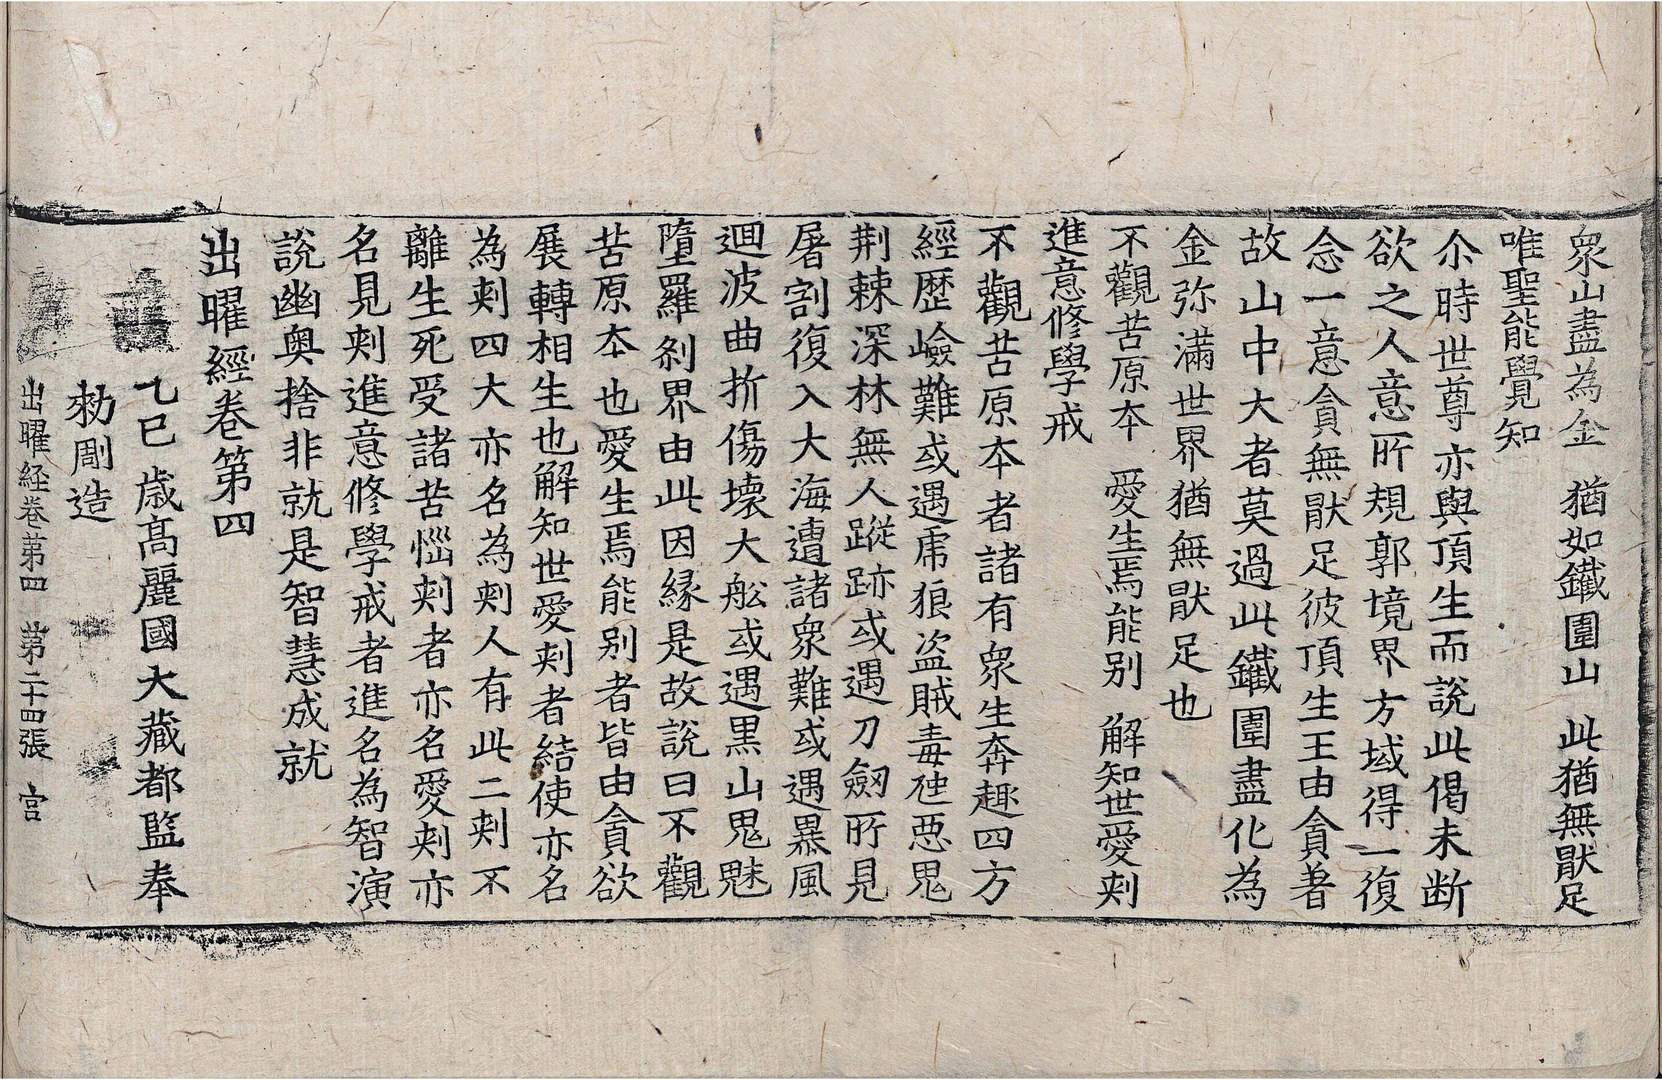 衆山盡為金 猶如鐵圍山 此猶無猒足
唯聖能覺知
尒時世尊亦與頂生而說此偈未断
欲之人意所規郭境界方域得一復
念一意貪無猒足彼頂生王由貪著
故山中大者莫過此鐵圍盡化為
金弥滿世界猶無猒足也
不觀苦原本 愛生焉能别 解知世愛刾
進意修學戒
不觀苦原本者諸有衆生奔趣四方
經歷嶮難或遇虎狼盗賊毒虵惡鬼
荆棘深林無人蹤跡或遇刀劒所見
屠割復入大海遭諸衆難或遇暴風
迴波曲折傷壞大舩或遇黒山鬼魅
墮羅剎界由此因緣是故說曰不觀
苦原本也愛生焉能别者皆由貪欲
展轉相生也解知世愛刾者結使亦名
為刾四大亦名為刾人有此二刾不
離生死受諸苦惱刾者亦名愛刾亦
名見刾進意修學戒者進名為智演
說幽奥捨非就是智慧成就
出曜經卷第四
乙巳歳髙麗國大藏都監奉
勑彫造
出曜経卷第四 第二十四張 宫